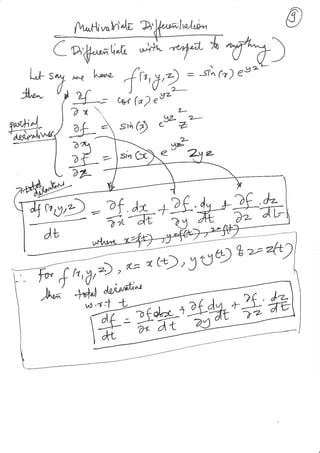 9
Multivariate Differentiation
( Differentiate with respect to anything )
Let say we have f(x, y, z) = sin(x) e^{yz^2}
then ∂f/∂x = cos(x) e^{yz^2}
partial derivatives
∂f/∂y = sin(x) e^{yz^2} z^2
∂f/∂z = sin(x) e^{yz^2} 2yz
total derivative
df(x, y, z)/dt = ∂f/∂x . dx/dt + ∂f/∂y . dy/dt + ∂f/∂z . dz/dt
where x=f(t), y=f(t), z=f(t)
∴ For f(x, y, z), x = x(t), y=y(t) & z=z(t)
then total derivative
w.r.t t
df/dt = ∂f/∂x dx/dt + ∂f/∂y dy/dt + ∂f/∂z . dz/dt